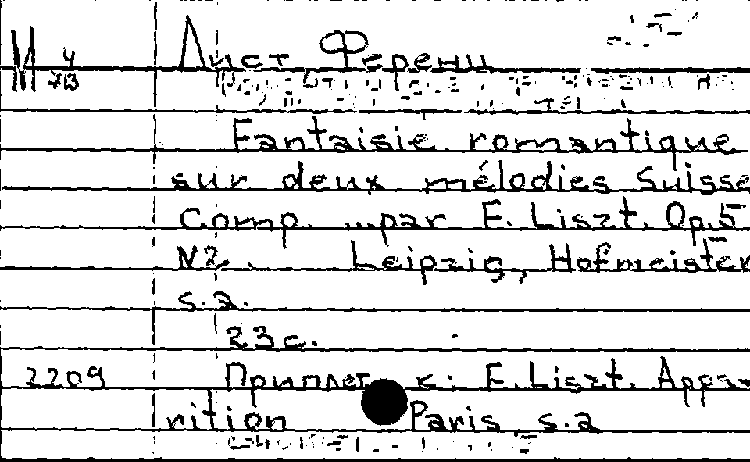 М 4/713
Лист Ференц
Fantaisie romantique
sur deux mélodies Suisse
Comp. ...par F. Liszt. Op.5
N2. Leipzig, Hofmeister
s.a.
23с.
2209 Приплет к: F. Liszt. Appa-
rition Paris, s.a